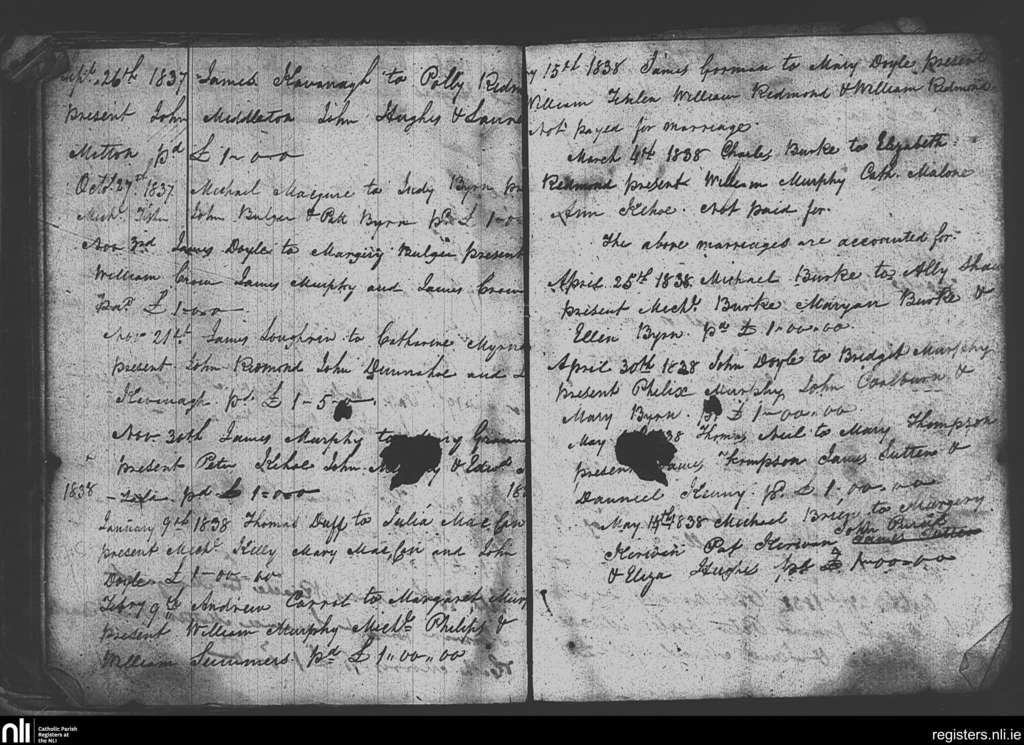 Sept. 26th 1837 James Kavanagh to Polly Redm
present John Middleton John Hughs &
Mitton pd £ 1-0-0
Octr. 27th 1837 Michael Macguire to Judy Byrn pr
Michl. John Bulger & Patt Byrn pd £ 1-0
Nov. 3rd James Doyle to Margery Bulger present
William Crow James Murphy and James Crow
pad. £ 1-0-0
Nov. 21st James Loughren to Catharine Myrn
present John Redmond John Dunnahoe and
Kavanagh pd. £ 1-5-0
Nov. 30th James Murphy to
present Peter Kehoe John & Edwd.
1838
pd £ 1-0-0 18
January 9th 1838 Thomas Duff to Julia Mac
present Michl. Kelly Mary Mac and John
Doyle £ 1-00-00
Febry 9th Andrew Carrol to Margaret Mur
present William Murphy Michl. Philips &
William Summers pd £ 1,,00,,00
y 15th 1838 James Gorman to Mary Doyle present
William William Redmond & William Redmond
Not payed for marriage
March 4th 1838 Charles Burke to Elizabeth
Redmond present William Murphy Cath. Malone
Ann Kehoe. Not paid for.
The above marriages are accounted for
April 25th 1838 Michael Burke to Ally Shau
present Michl. Burke Maryan Burke &
Ellen Byrn. pd £ 1-00-00
April 30th 1838 John Doyle to Bridget Murphy
Present Philix Murphy John Coalburn &
Mary Byrn. pd £ 1-00-00
May 38 Thomas Neil to Mary Thompson
presen James Thompson James Sutten &
Dauniel Kenny. pd. £ 1,,00,,00
May 1838 Michael Breen to Margery
Kerivan Pat Kerivan John
& Eliza Hughs pd £ 1-00-00
nli
Catholic Parish
Registers at
the NLI
registers.nli.ie